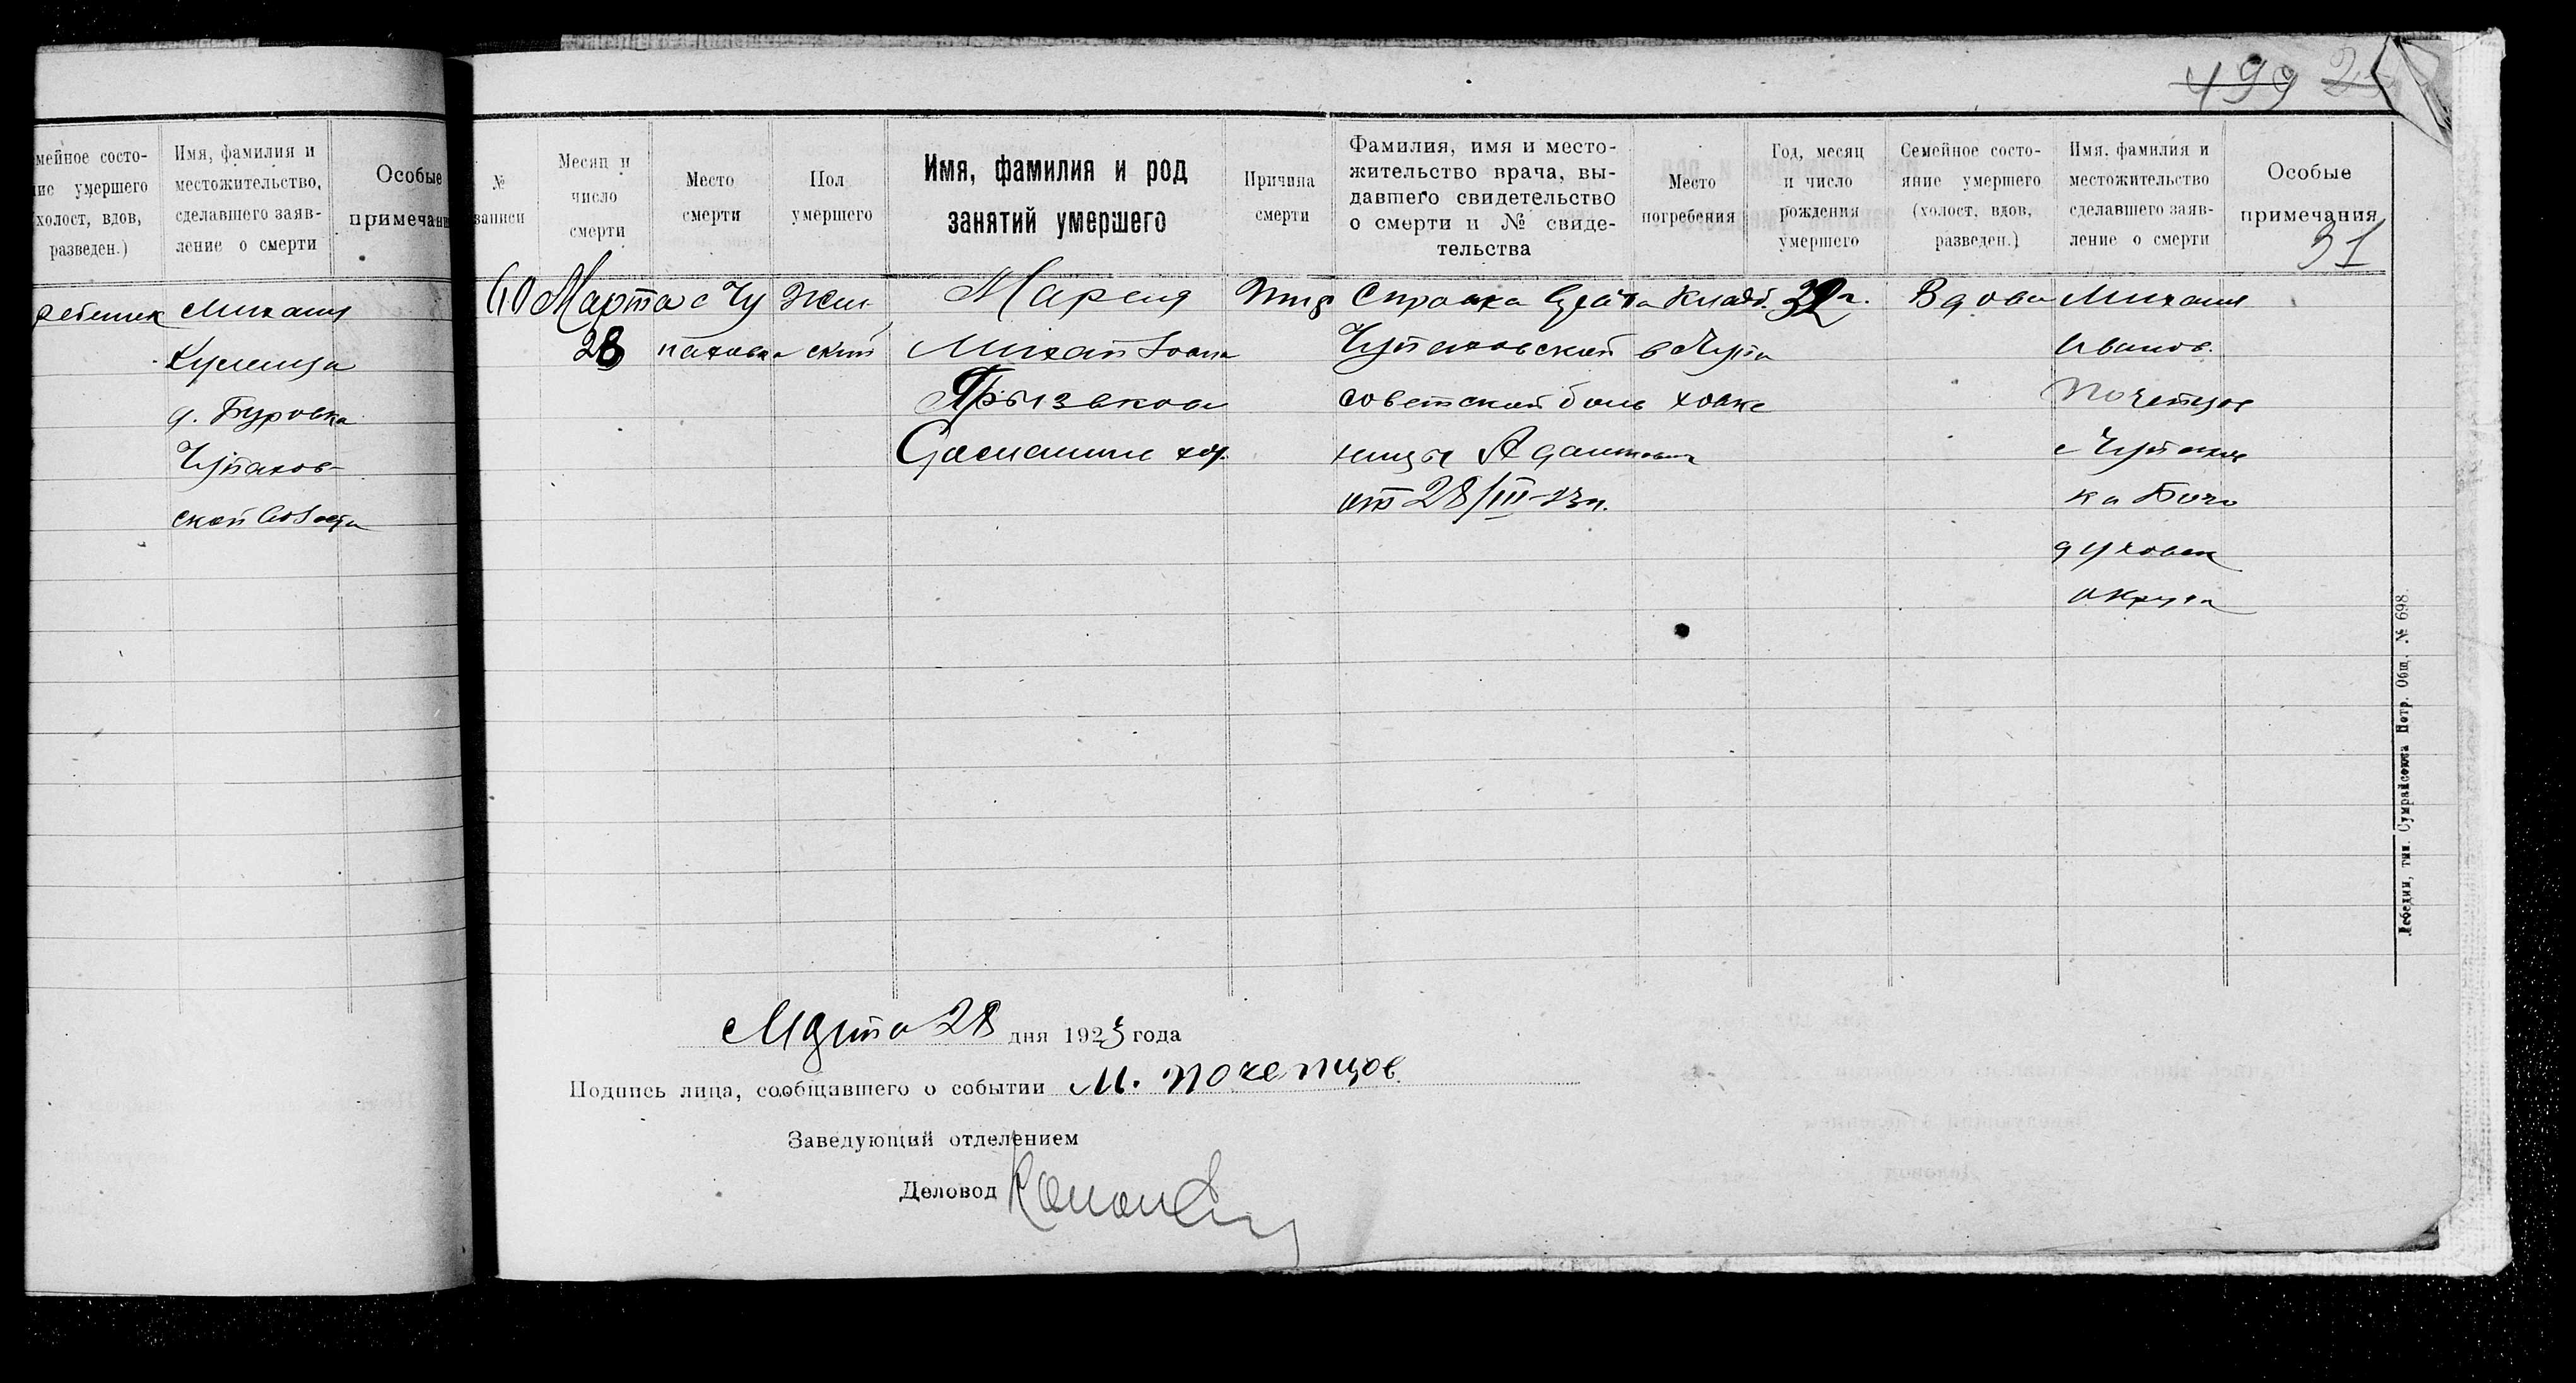 499
мейное состо-
ние умершего
холост, вдов,
разведен.)
Имя, фамилия и
местожительство,
сделавшего заяв-
ление о смерти
Особые
примечани
ребенк
Михаил
д. Буровка
Чупахов-
ской
№
записи
Месяц и
число
смерти
Место
смерти
Пол
умершего
Имя, фамилия и род
занятий умершего
Причина
смерти
Фамилия, имя и место-
жительство врача, вы-
давшего свидетельство
о смерти и № свиде-
тельства
Место
погребения
Год, месяц
и число
рождения
умершего
Семейное состо-
яние умершего
(холост, вдов,
разведен.)
Имя, фамилия и
местожительство
сделавшего заяв-
ление о смерти
Особые
примечания
31
40
Марта
28
с Чу
паховка
Жен
ский
Мария
Михайловна
Домашн хоз.
Тиф
Справка врача
Чупаховской
советской боль
ницы
от 28/III-23г.
Кладб.
в Чупа
ховке
32 г.
Вдова
Михаил
Иванов.
Почепцов
с Чупахов
ка Бого
духовск
округа
Марта 28 дня 1923 года
Подпись лица, сообщавшего о событии М. Почепцов.
Заведующий отделением
Деловод
Лебедин, тип. Сумрайсоюза Потр. Общ. № 698.